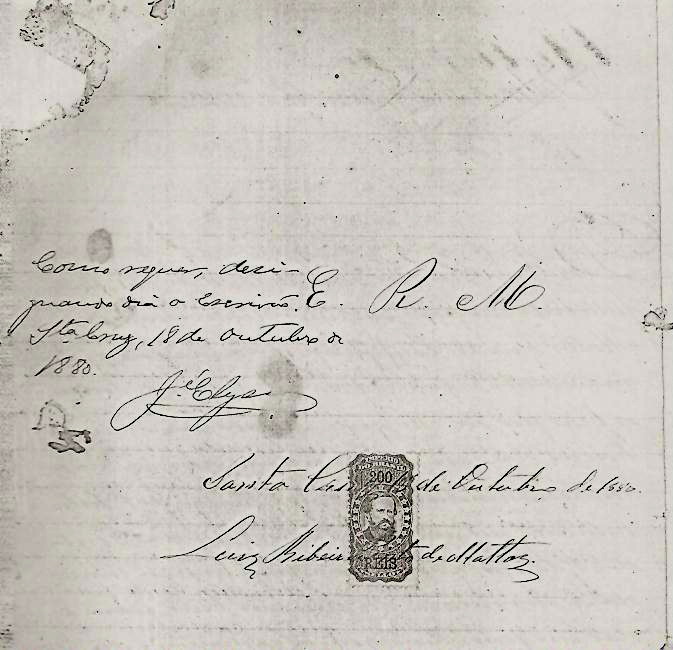 Como requer, desi-
gnando dia o Escrivão.
Sta Cruz, 18 de Outubro de
1880.
J.é Elys
E. R. M.
Santa Cruz de Outubro de 1880.
IMPERIO
DO BRASIL
200
REIS
Luiz Ribeiro de Mattos.